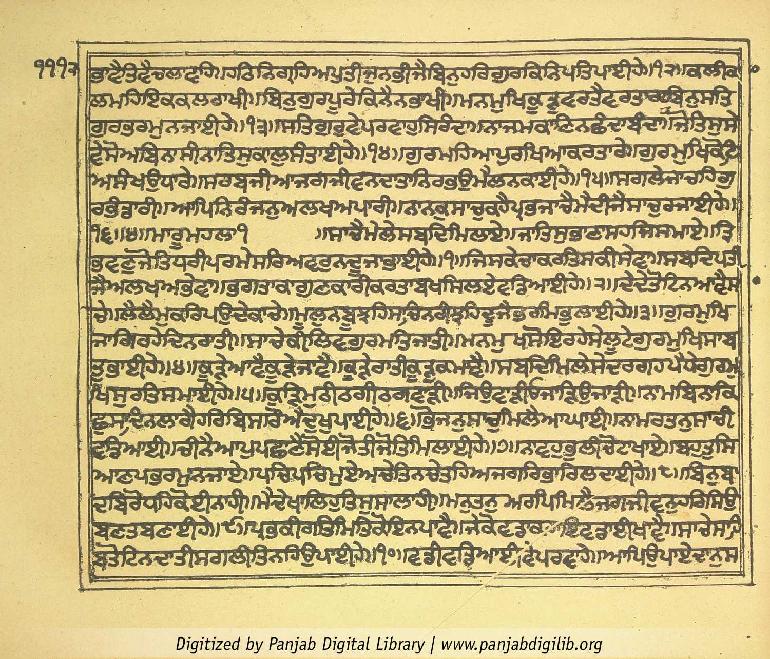 ੧੧੧੨
ਭਾਣੈਤਿਵੈਚਲਾਵਹਿ॥ਹਠਿਨਿਗ੍ਰਹਿਅਪਤੀਜੁਨਭੀਜੈਬਿਨੁਹਰਿਗੁਰਕਿਨਿਪਤਿਪਾਈਹੇ॥੧੨॥ਕਲੀਕਾ
ਲਮਹਿਇਕਕਲਰਾਖੀ॥ਬਿਨੁਗੁਰਪੂਰੇਕਿਨੈਨਭਾਖੀ॥ਮਨਮੁਖਿਕੂੜੁਵਰਤੈਵਰਤਾਰਾਬਿਨੁਸਤਿ
ਗੁਰਭਰਮੁਨਜਾਈਹੇ॥੧੩॥ਸਤਿਗੁਰੁਵੇਪਰਵਾਹੁਸਿਰੰਦਾ॥ਨਾਜਮਕਾਣਿਨਛੰਦਾਬੰਦਾ॥ਜੋਤਿਸੁਸੇ
ਵੇਸੋਅਬਿਨਾਸੀਨਾਤਿਸੁਕਾਲੁਸੰਤਾਈਹੇ॥੧੪॥ਗੁਰਮਹਿਆਪੁਰਖਿਆਕਰਤਾਰੇ॥ਗੁਰਮੁਖਿਕੋਟਿ
ਅਸੰਖਉਧਾਰੇ॥ਸਰਬਜੀਆਜਗਜੀਵਨਦਾਤਾਨਿਰਭਉਮੈਲੁਨਕਾਈਹੇ॥੧੫॥ਸਗਲੇਜਾਚਹਿਗੁ
ਰਭੰਡਾਰੀ॥ਆਪਿਨਿਰੰਜਨੁਅਲਖਅਪਾਰੀ॥ਨਾਨਕੁਸਾਚੁਕਹੈਪ੍ਰਭਜਾਚੈਮੈਦੀਜੈਸਾਚੁਰਜਾਈਹੇ॥
੧੬॥੪॥ਮਾਰੂਮਹਲਾ੧ ॥ਸਾਚੈਮੇਲੇਸਬਦਿਮਿਲਾਏ॥ਜਾਤਿਸੁਭਾਣਾਸਹਜਿਸਮਾਏ॥ਤ੍ਰਿ
ਭਵਣਜੋਤਿਧਰੀਪਰਮੇਸਰਿਅਵਰੁਨਦੂਜਾਭਾਈਹੇ॥੧॥ਜਿਸਕੇਚਾਕਰਤਿਸਕੀਸੇਵਾ॥ਸਬਦਿਪਤੀ
ਜੈਅਲਖਅਭੇਵਾ॥ਭਗਤਾਕਾਗੁਣਕਾਰੀਕਰਤਾਬਖਸਿਲਏਵਡਿਆਈਹੇ॥੨॥ਦੇਦੇਤੋਟਿਨਆਵੈਸਾ
ਚੇ॥ਲੈਲੈਮੁਕਰਿਪਉਦੇਕਾਚੇ॥ਮੂਲੁਨਬੂਝਹਿਸਾਚਿਨਰੀਝਹਿਦੂਜੈਭਰਮਿਭੁਲਾਈਹੇ॥੩॥ਗੁਰਮੁਖਿ
ਜਾਗਿਰਹੇਦਿਨਰਾਤੀ॥ਸਾਚੇਕੀਲਿਵਗੁਰਮਤਿਜਾਤੀ॥ਮਨਮੁਖਸੋਇਰਹੇਸੇਲੂਟੇਗੁਰਮੁਖਿਸਾਬ
ਤੁਭਾਈਹੇ॥੪॥ਕੂੜੇਆਵੈਕੂੜੇਜਾਵੈ॥ਕੂੜੇਰਾਤੀਕੂੜੁਕਮਾਵੈ॥ਸਬਦਿਮਿਲੇਸੇਦਰਗਹਪੈਧੇਗੁਰਮੁ
ਖਿਸੁਰਤਿਸਮਾਈਹੇ॥੫॥ਕੂੜਿਮੁਠੀਠਗੀਠਗਵਾੜੀ॥ਜਿਉਵਾੜੀਓਜਾੜਿਉਜਾੜੀ॥ਨਾਮਬਿਨਾਕਿ
ਛੁਸਾਦਿਨਲਾਗੈਹਰਿਬਿਸਰਿਐਦੁਖੁਪਾਈਹੇ॥੬॥ਭੋਜਨੁਸਾਚੁਮਿਲੈਆਘਾਈ॥ਨਾਮਰਤਨੁਸਾਚੀ
ਵਡਿਆਈ॥ਚੀਨੈਆਪੁਪਛਾਣੈਸੋਈਜੋਤੀਜੋਤਿਮਿਲਾਈਹੇ॥੭॥ਨਾਵਹੁਭੁਲੀਚੋਟਾਖਾਏ॥ਬਹੁਤੁਸਿ
ਆਣਪਭਰਮੁਨਜਾਏ॥ਪਚਿਪਚਿਮੁਏਅਚੇਤਨਚੇਤਹਿਅਜਗਰਿਭਾਰਿਲਦਾਈਹੇ॥੮॥ਬਿਨੁਬਾ
ਦਬਿਰੋਧਹਿਕੋਈਨਾਹੀ॥ਮੈਦੇਖਾਲਿਹੁਤਿਸੁਸਾਲਾਹੀ॥ਮਨੁਤਨੁਅਰਪਿਮਿਲੈਜਗਜੀਵਨੁਹਰਿਸਿਉ
ਬਣਤਬਣਾਈਹੇ॥੯॥ਪ੍ਰਭਕੀਗਤਿਮਿਤਿਕੋਇਨਪਾਵੈ॥ਜੇਕੋਵਡਾਕਹਾਇਵਡਾਈਖਾਵੈ॥ਸਾਚੇਸਾਹਿ
ਬਤੋਟਿਨਦਾਤੀਸਗਲੀਤਿਨਹਿਉਪਾਈਹੇ॥੧੦॥ਵਡੀਵਡਿਆਈਵੇਪਰਵਾਹੇ॥ਆਪਿਉਪਾਏਦਾਨੁਸ
Digitized by Panjab Digital Library | www.panjabdigilib.org